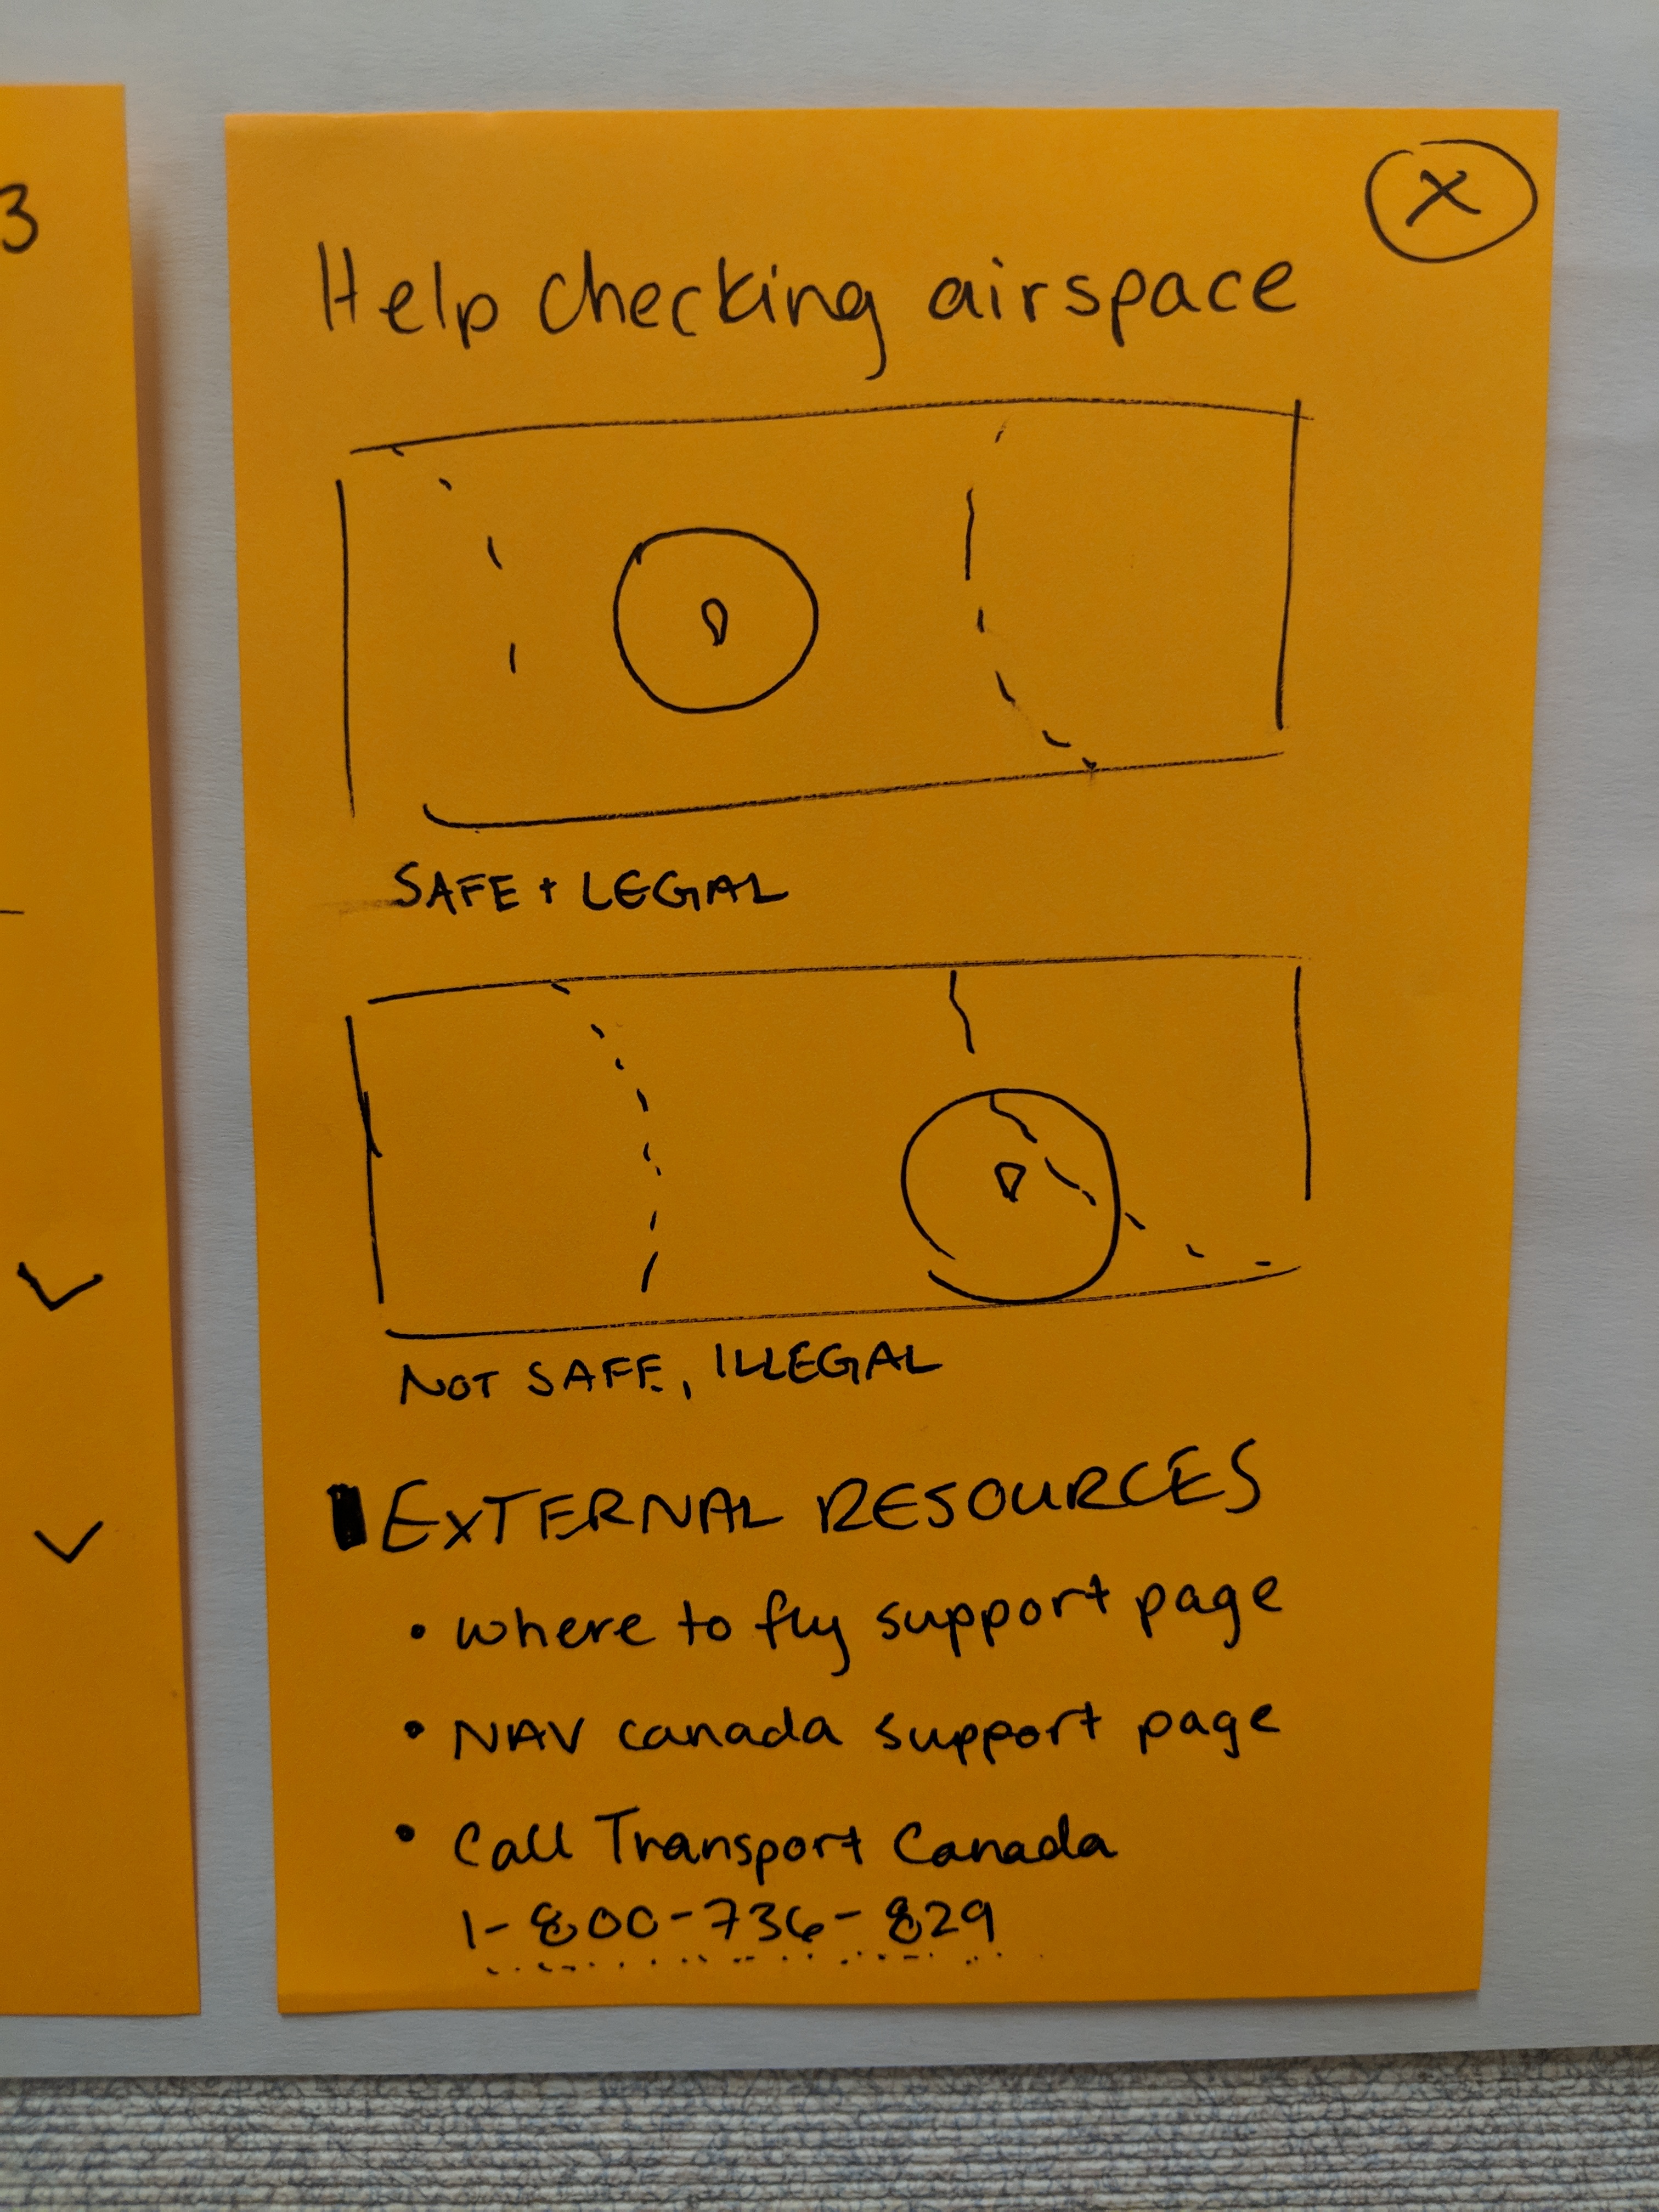 3
X
Help checking airspace
SAFE + LEGAL
NOT SAFE, ILLEGAL
EXTERNAL RESOURCES
• where to fly support page
• NAV canada support page
• Call Transport Canada
1-800-736-829